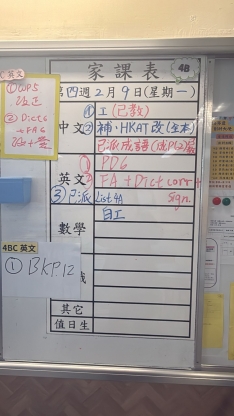 家課表
4B
第四週2月9日(星期一)
中文
① 工(已教)
② 補·HKAT改(全本)
已派成語(成P(2)層
英文
① PD6
② FA + Dict corr +
sign.
③ 已派 List 4A
數學
自工
其它
值日生
C 英文
① WP5
改正
② Dict6
+ FA6
改正+簽
4BC 英文
① BK P.12